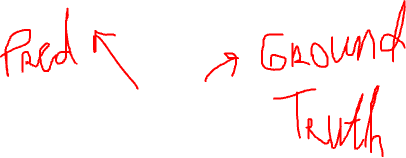 Pred
GROUND
Truth